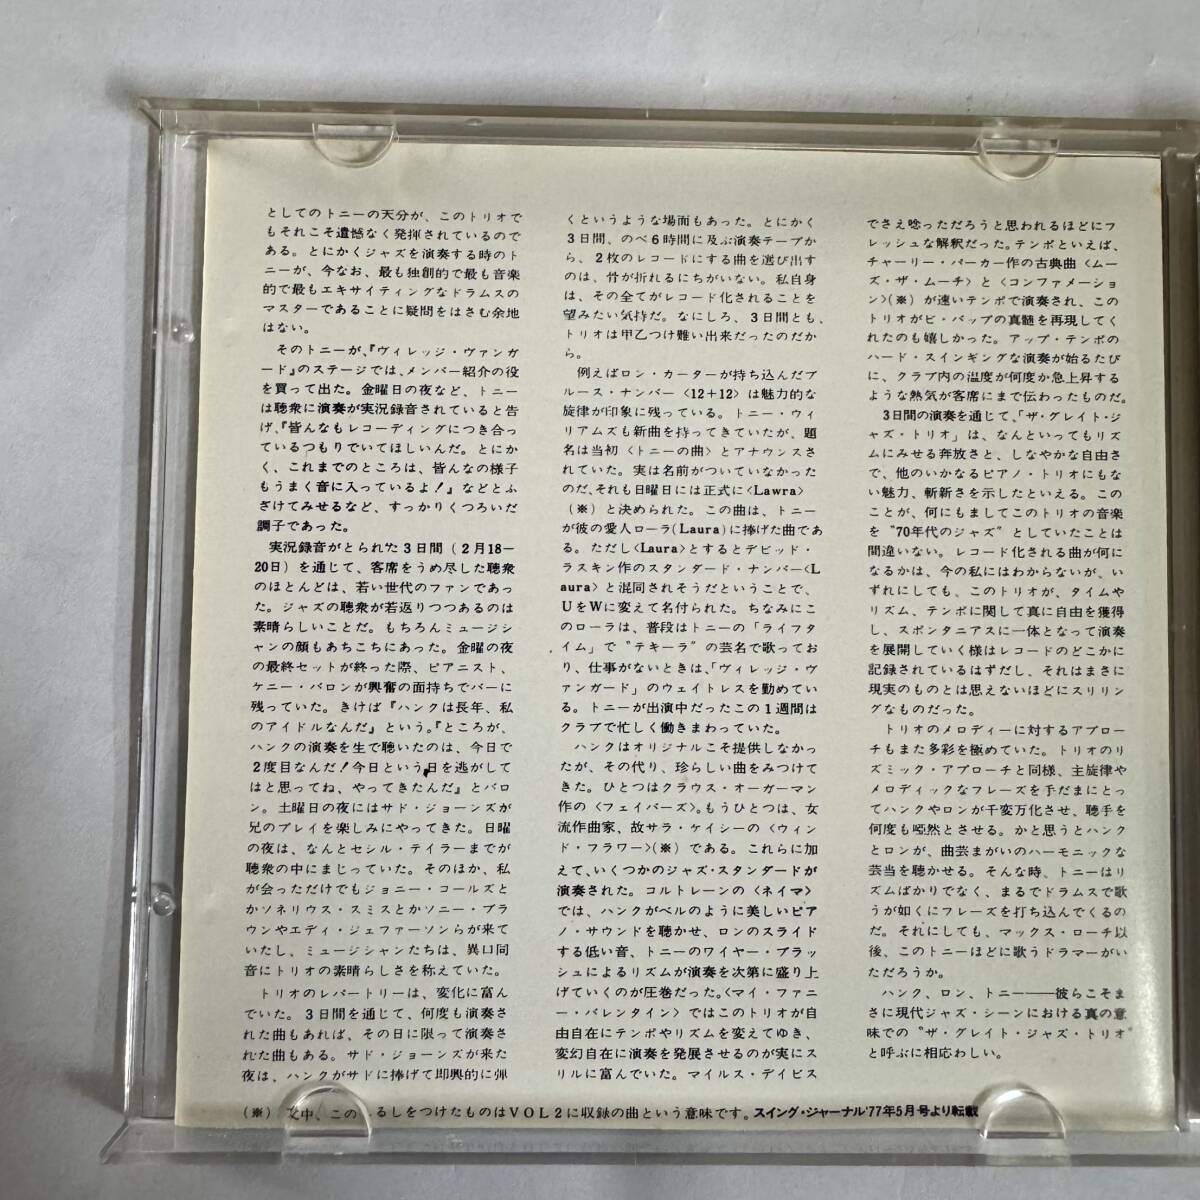 としてのトニーの天分が、このトリオで
もそれこそ遺憾なく発揮されているので
ある。とにかくジャズを演奏する時のト
ニーが、今なお、最も独創的で最も音楽
的で最もエキサイティングなドラムスの
マスターであることに疑問をはさむ余地
はない。
そのトニーが、『ヴィレッジ・ヴァンガ
ード』のステージでは、メンバー紹介の役
を買って出た。金曜日の夜など、トニー
は聴衆に演奏が実況録音されていると告
げ、『皆んなもレコーディングにつき合っ
ているつもりでいてほしいんだ。とにか
く、これまでのところは、皆んなの様子
もうまく音に入っているよ!』などとふ
ざけてみせるなど、すっかりくつろいだ
調子であった。
実況録音がとられた3日間(2月18―
20日)を通じて、客席をうめ尽した聴衆
のほとんどは、若い世代のファンであっ
た。ジャズの聴衆が若返りつつあるのは
素晴らしいことだ。もちろんミュージシ
ャンの顔もあちこちにあった。金曜の夜
の最終セットが終った際、ピアニスト、
ケニー・バロンが興奮の面持ちでバーに
残っていた。きけば『ハンクは長年、私
のアイドルなんだ』という。『ところが、
ハンクの演奏を生で聴いたのは、今日で
2度目なんだ!今日という日を逃がして
はと思ってね、やってきたんだ』とバロ
ン。土曜日の夜にはサド・ジョーンズが
兄のプレイを楽しみにやってきた。日曜
の夜は、なんとセシル・テイラーまでが
聴衆の中にまじっていた。そのほか、私
が会っただけでもジョニー・コールズと
かソネリウス・スミスとかソニー・ブラ
ウンやエディ・ジェファーソンらが来て
いたし、ミュージシャンたちは、異口同
音にトリオの素晴らしさを称えていた。
トリオのレパートリーは、変化に富ん
でいた。3日間を通じて、何度も演奏さ
れた曲もあれば、その日に限って演奏さ
れた曲もある。サド・ジョーンズが来た
夜は、ハンクがサドに捧げて即興的に弾
くというような場面もあった。とにかく
3日間、のべ6時間に及ぶ演奏テープか
ら、2枚のレコードにする曲を選び出す
のは、骨が折れるにちがいない。私自身
は、その全てがレコード化されることを
望みたい気持だ。なにしろ、3日間とも、
トリオは甲乙つけ難い出来だったのだか
ら。
例えばロン・カーターが持ち込んだブ
ルース・ナンバー〈12+12〉は魅力的な
旋律が印象に残っている。トニー・ウィ
リアムズも新曲を持ってきていたが、題
名は当初〈トニーの曲〉とアナウンスさ
れていた。実は名前がついていなかった
のだ、それも日曜日には正式に〈Lawra〉
(※)と決められた。この曲は、トニー
が彼の愛人ローラ(Laura)に捧げた曲であ
る。ただし〈Laura〉とするとデビッド・
ラスキン作のスタンダード・ナンバー〈L
aura〉と混同されそうだということで、
UをWに変えて名付られた。ちなみにこ
のローラは、普段はトニーの「ライフタ
イム」で“テキーラ”の芸名で歌ってお
り、仕事がないときは、「ヴィレッジ・ヴ
ァンガード」のウェイトレスを勤めてい
る。トニーが出演中だったこの1週間は
クラブで忙しく働きまわっていた。
ハンクはオリジナルこそ提供しなかっ
たが、その代り、珍らしい曲をみつけて
きた。ひとつはクラウス・オーガーマン
作の〈フェイバーズ〉。もうひとつは、女
流作曲家、故サラ・ケイシーの〈ウィン
ド・フラワー〉(※)である。これらに加
えて、いくつかのジャズ・スタンダードが
演奏された。コルトレーンの〈ネイマ〉
では、ハンクがベルのように美しいピア
ノ・サウンドを聴かせ、ロンのスライド
する低い音、トニーのワイヤー・ブラッ
シュによるリズムが演奏を次第に盛り上
げていくのが圧巻だった。〈マイ・ファニ
ー・バレンタイン〉ではこのトリオが自
由自在にテンポやリズムを変えてゆき、
変幻自在に演奏を発展させるのが実にス
リルに富んでいた。マイルス・デイビス
でさえ唸っただろうと思われるほどにフ
レッシュな解釈だった。テンポといえば、
チャーリー・パーカー作の古典曲〈ムー
ズ・ザ・ムーチ〉と〈コンファメーショ
ン〉(※)が速いテンポで演奏され、この
トリオがビ・バップの真髄を再現してく
れたのも嬉しかった。アップ・テンポの
ハード・スインギングな演奏が始るたび
に、クラブ内の温度が何度か急上昇する
ような熱気が客席にまで伝わったものだ。
3日間の演奏を通じて、「ザ・グレイト・ジ
ャズ・トリオ」は、なんといってもリズ
ムにみせる奔放さと、しなやかな自由さ
で、他のいかなるピアノ・トリオにもな
い魅力、斬新さを示したといえる。この
ことが、何にもましてこのトリオの音楽
を“70年代のジャズ”としていたことは
間違いない。レコード化される曲が何に
なるかは、今の私にはわからないが、い
ずれにしても、このトリオが、タイムや
リズム、テンポに関して真に自由を獲得
し、スポンタニアスに一体となって演奏
を展開していく様はレコードのどこかに
記録されているはずだし、それはまさに
現実のものとは思えないほどにスリリン
グなものだった。
トリオのメロディーに対するアプロー
チもまた多彩を極めていた。トリオのリ
ズミック・アプローチと同様、主旋律や
メロディックなフレーズを手だまにとっ
てハンクやロンが千変万化させ、聴手を
何度も唖然とさせる。かと思うとハンク
とロンが、曲芸まがいのハーモニックな
芸当を聴かせる。そんな時、トニーはリ
ズムばかりでなく、まるでドラムスで歌
うが如くにフレーズを打ち込んでくるの
だ。それにしても、マックス・ローチ以
後、このトニーほどに歌うドラマーがい
ただろうか。
ハンク、ロン、トニー――彼らこそま
さに現代ジャズ・シーンにおける真の意
味での“ザ・グレイト・ジャズ・トリオ”
と呼ぶに相応わしい。
(※) 文中、このしるしをつけたものはVOL2に収録の曲という意味です。スイング・ジャーナル'77年5月号より転載